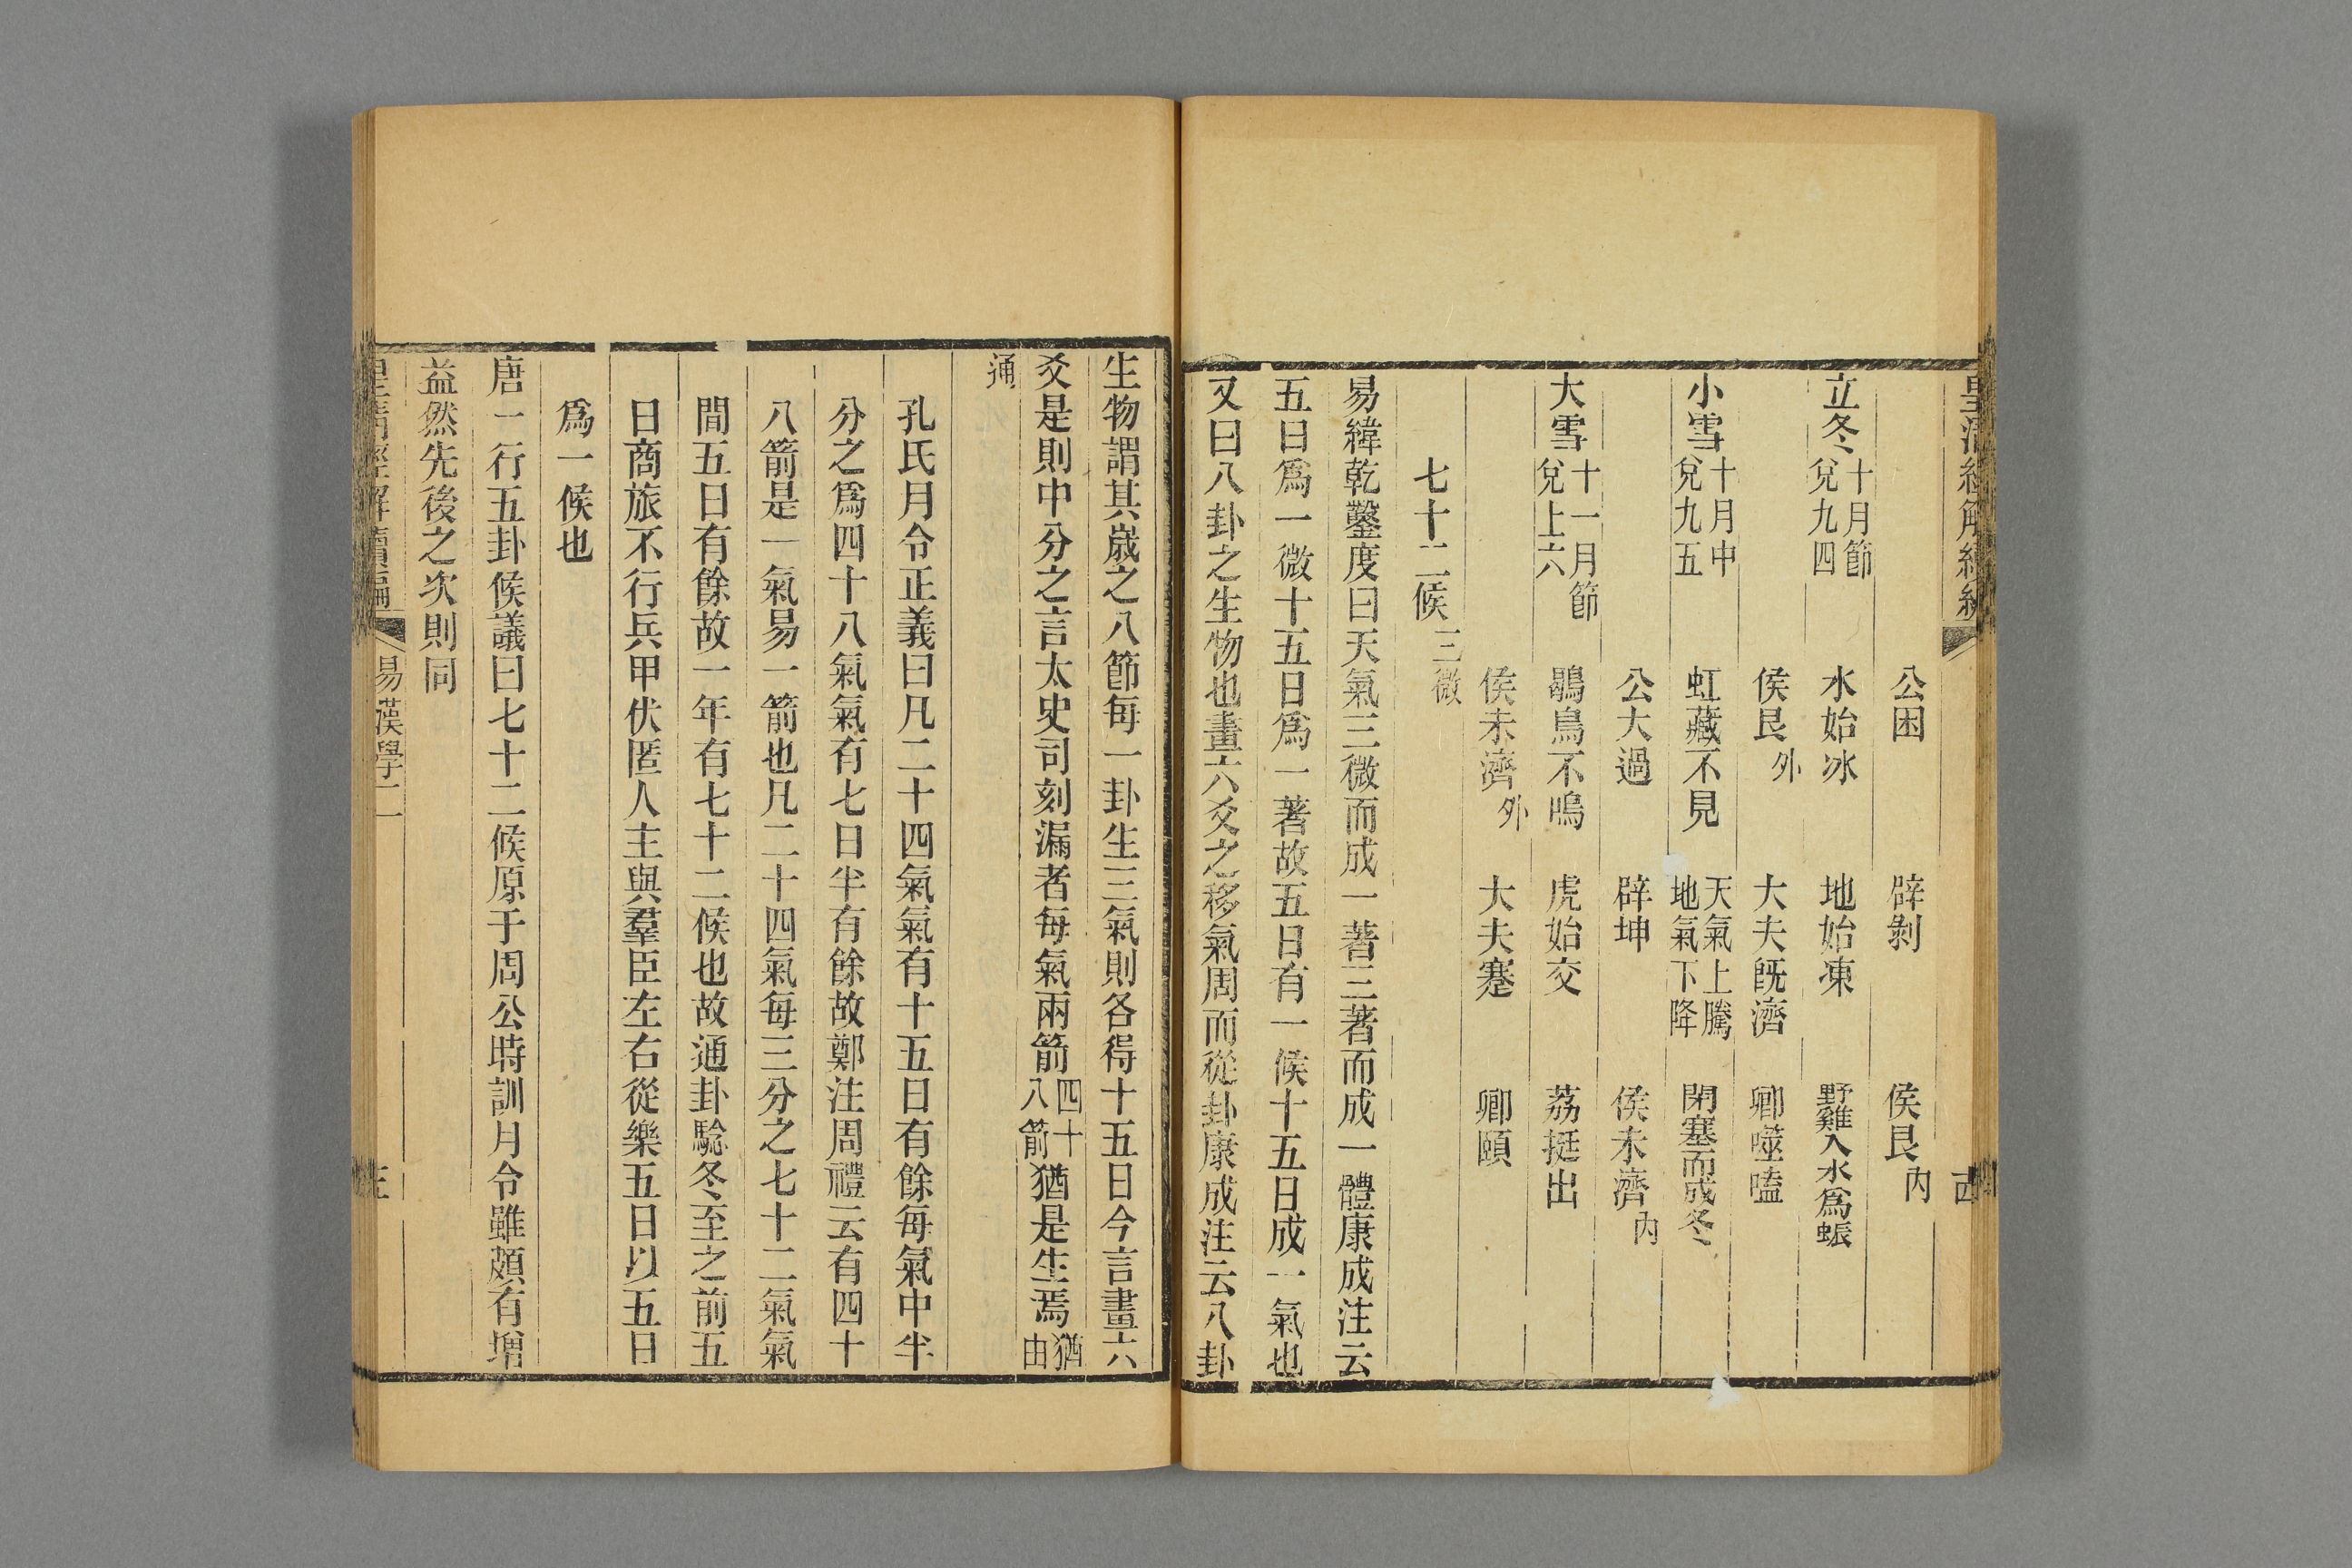 皇清經解續編
公困 辟剝 侯艮內
立冬十月節兌九四 水始冰 地始凍 野雞入水爲蜄
侯艮外 大夫旣濟 卿噬嗑
小雪十月中兌九五 虹藏不見 天氣上騰地氣下降 閉塞而成冬
公大過 辟坤 侯未濟內
大雪十一月節兌上六 鶡鳥不鳴 虎始交 荔挺出
侯未濟外 大夫蹇 卿頤
七十二候三微
易緯乾鑿度曰天氣三微而成一著三著而成一體康成注云
五日爲一微十五日爲一著故五日有一候十五日成一氣也
又曰八卦之生物也畫六爻之移氣周而從卦康成注云八卦
生物謂其歲之八節每一卦生三氣則各得十五日今言畫六
爻是則中分之言太史司刻漏者每氣兩箭四十八箭猶是生焉猶由
通
孔氏月令正義曰凡二十四氣氣有十五日有餘每氣中半
分之爲四十八氣氣有七日半有餘故鄭注周禮云有四十
八箭是一氣易一箭也凡二十四氣每三分之七十二氣氣
間五日有餘故一年有七十二候也故通卦驗冬至之前五
日商旅不行兵甲伏匿人主與羣臣左右從樂五日以五日
爲一候也
唐一行五卦候議曰七十二候原于周公時訓月令雖頗有增
益然先後之次則同
皇清經解續編 易漢學二